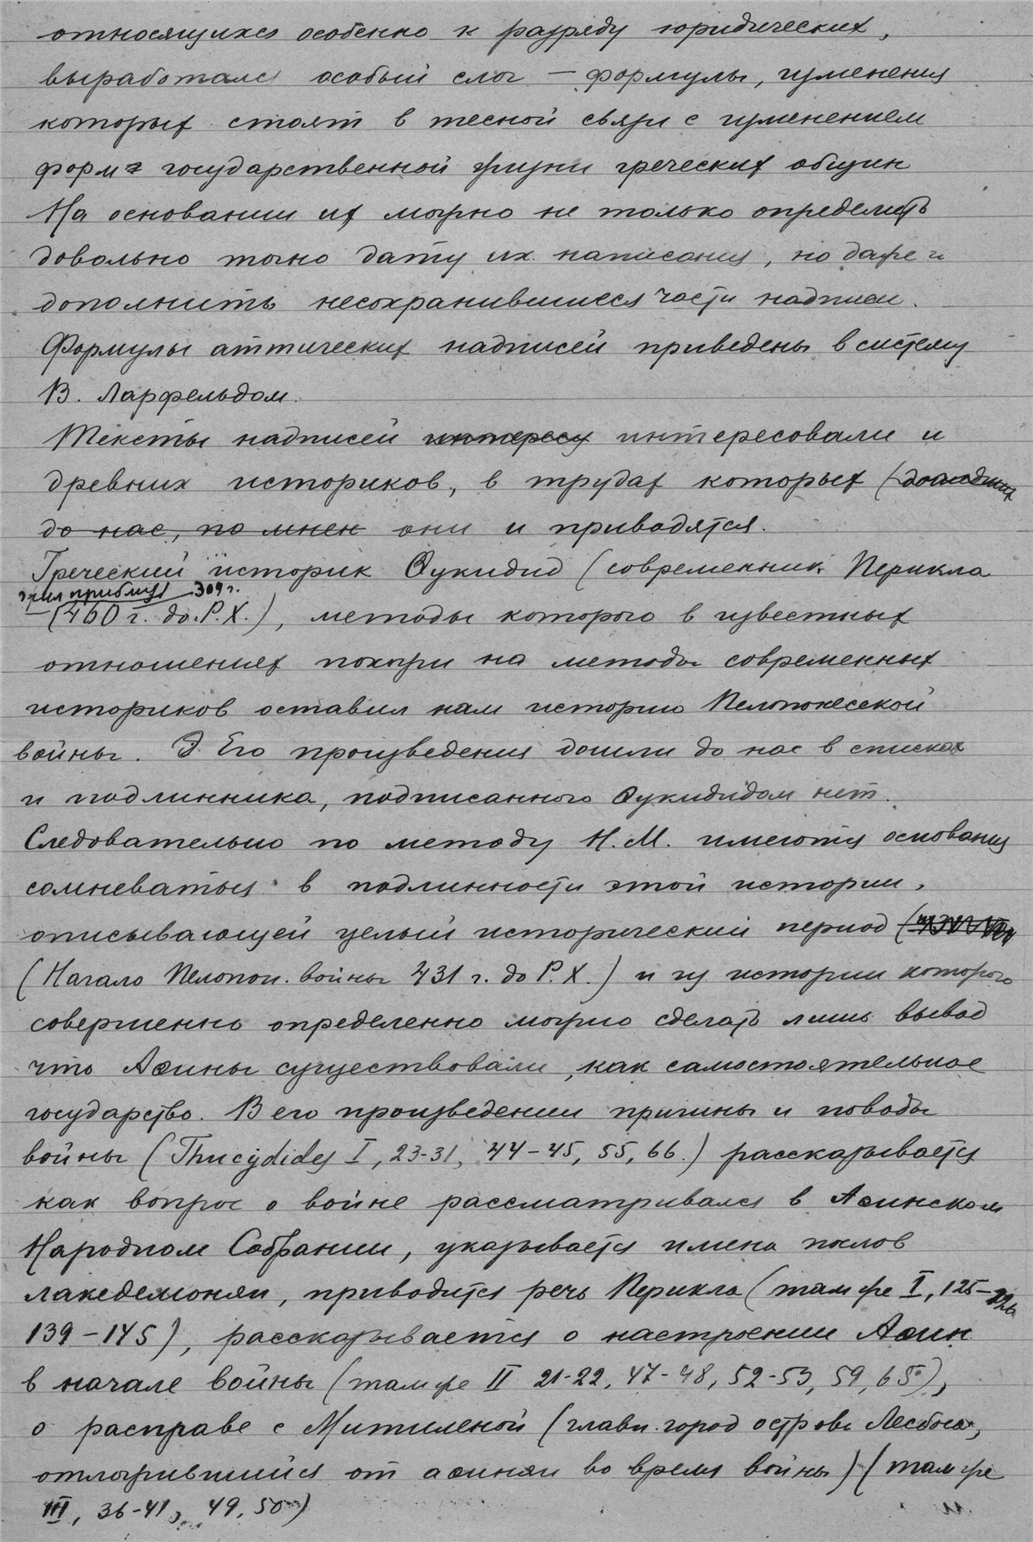 относящихся особенно к разряду юридических,
выработался особый слог — формулы, изменения
которых стоят в тесной связи с изменением
форм государственной жизни греческих общин
На основании их можно не только определить
довольно точно дату их написания, но даже и
дополнить несохранившиеся части надписи.
Формулы аттических надписей приведены в систему
В. Ларфельдом.
Тексты надписей интересу интересовали и
древних историков, в трудах которых (дошедших
до нас, по мнен они и приводятся.
Греческий историк Ѳукидид (современник Перикла
жил приблиз 309 г.
– (460 г. до Р.Х.), методы которого в известных
отношениях похожи на методы современных
историков оставил нам историю Пелопонесской
войны. Его произведения дошли до нас в списках
и подлинника, подписанного Ѳукидидом нет.
Следовательно по методу Н.М. имеются основания
сомневаться в подлинности этой истории,
описывающей целый исторический период
(Начало Пелопон. войны 431 г. до Р.Х.) и из истории которого
совершенно определенно можно сделать лишь вывод
что Аѳины существовали, как самостоятельное
государство. В его произведении причины и поводы
войны (Thucydides I, 23-31, 44-45, 55, 66.) рассказывается
как вопрос о войне рассматривался в Аѳинском
Народном Собрании, указывается имена послов
лакедемонян, приводится речь Перикла (там же I, 125-126
139-145), рассказывается о настроении Аѳин
в начале войны (там же II 21-22, 47-48, 52-53, 59, 65),
о расправе с Митиленой (главн. город острова Лесбоса,
отложившийся от аѳинян во время войны) (там же
III, 36-41, 49, 50)